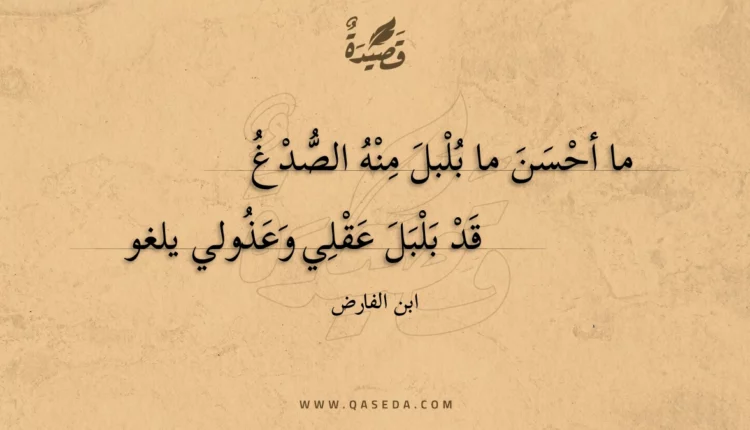 قَصِيْدَةٌ
ما أحْسَنَ ما بُلْبلَ مِنْهُ الصُّدْغُ
قَدْ بَلْبَلَ عَقْلِي وَعَذُولي يلغو
ابن الفارض
WWW.QASEDA.COM